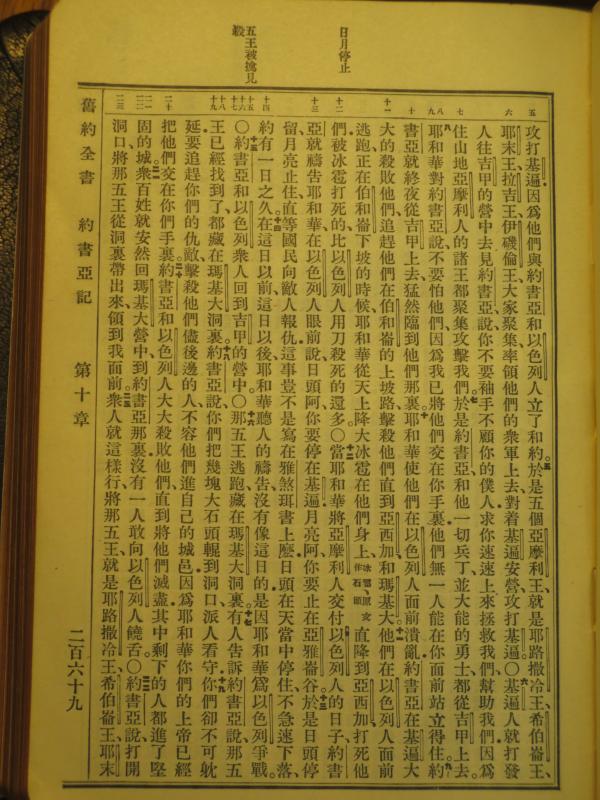 日月停止
五王被擒見殺
五 六 七 八 九 十 十一 十二 十三 十四 十五 十六 十七 十八 十九 二十 二一 二二 二三
攻打基遍、因爲他們與約書亞和以色列人立了和約。於是五個亞摩利王、就是耶路撒冷王、希伯崙王、
耶末王、拉吉王、伊磯倫王、大家聚集、率領他們的衆軍上去、對着基遍安營、攻打基遍。〇基遍人就打發
人往吉甲的營中去見約書亞、說、你不要袖手不顧你的僕人、求你速速上來拯救我們、幫助我們、因爲
住山地亞摩利人的諸王都聚集攻擊我們。於是約書亞和他一切兵丁、並大能的勇士、都從吉甲上去。
耶和華對約書亞說、不要怕他們、因爲我已將他們交在你手裏、他們無一人能在你面前站立得住。約
書亞就終夜從吉甲上去、猛然臨到他們那裏。耶和華使他們在以色列人面前潰亂、約書亞在基遍大
大的殺敗他們、追趕他們在伯和崙的上坡路、擊殺他們直到亞西加、和瑪基大。他們在以色列人面前
逃跑、正在伯和崙下坡的時候、耶和華從天上降大冰雹在他們身上、冰雹原文作石頭直降到亞西加、打死他
們、被冰雹打死的、比以色列人用刀殺死的還多。〇當耶和華將亞摩利人交付以色列人的日子、約書
亞就禱告耶和華、在以色列人眼前說、日頭阿、你要停在基遍、月亮阿、你要止在亞雅崙谷。於是日頭停
留、月亮止住、直等國民向敵人報仇、這事豈不是寫在雅煞珥書上麼、日頭在天當中停住、不急速下落、
約有一日之久。在這日以前、這日以後、耶和華聽人的禱告、沒有像這日的、是因耶和華爲以色列爭戰。
〇約書亞和以色列衆人回到吉甲的營中。〇那五王逃跑、藏在瑪基大洞裏。有人告訴約書亞說、那五
王已經找到了、都藏在瑪基大洞裏。約書亞說、你們把幾塊大石頭輥到洞口、派人看守。你們卻不可躭
延、要追趕你們的仇敵、擊殺他們儘後邊的人、不容他們進自己的城邑、因爲耶和華你們的上帝已經
把他們交在你們手裏。約書亞和以色列人大大殺敗他們、直到將他們滅盡、其中剩下的人都進了堅
固的城、衆百姓就安然回瑪基大營中、到約書亞那裏、沒有一人敢向以色列人饒舌。〇約書亞說、打開
洞口、將那五王從洞裏帶出來、領到我面前。衆人就這樣行、將那五王、就是耶路撒冷王、希伯崙王、耶末
舊約全書 約書亞記 第十章 二百六十九